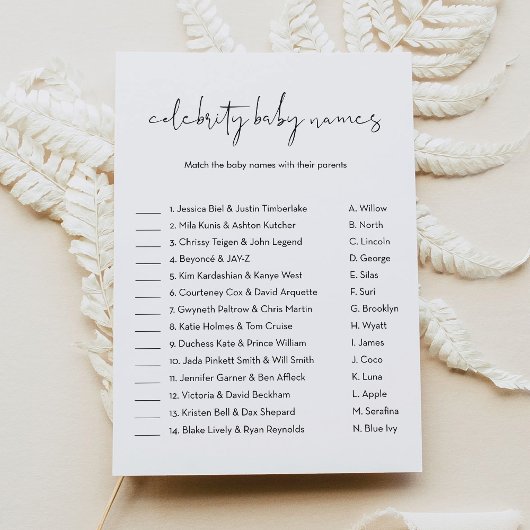 celebrity baby names
Match the baby names with their parents
____ 1. Jessica Biel & Justin Timberlake A. Willow
____ 2. Mila Kunis & Ashton Kutcher B. North
____ 3. Chrissy Teigen & John Legend C. Lincoln
____ 4. Beyoncé & JAY-Z D. George
____ 5. Kim Kardashian & Kanye West E. Silas
____ 6. Courteney Cox & David Arquette F. Suri
____ 7. Gwyneth Paltrow & Chris Martin G. Brooklyn
____ 8. Katie Holmes & Tom Cruise H. Wyatt
____ 9. Duchess Kate & Prince William I. James
____ 10. Jada Pinkett Smith & Will Smith J. Coco
____ 11. Jennifer Garner & Ben Affleck K. Luna
____ 12. Victoria & David Beckham L. Apple
____ 13. Kristen Bell & Dax Shepard M. Serafina
____ 14. Blake Lively & Ryan Reynolds N. Blue Ivy